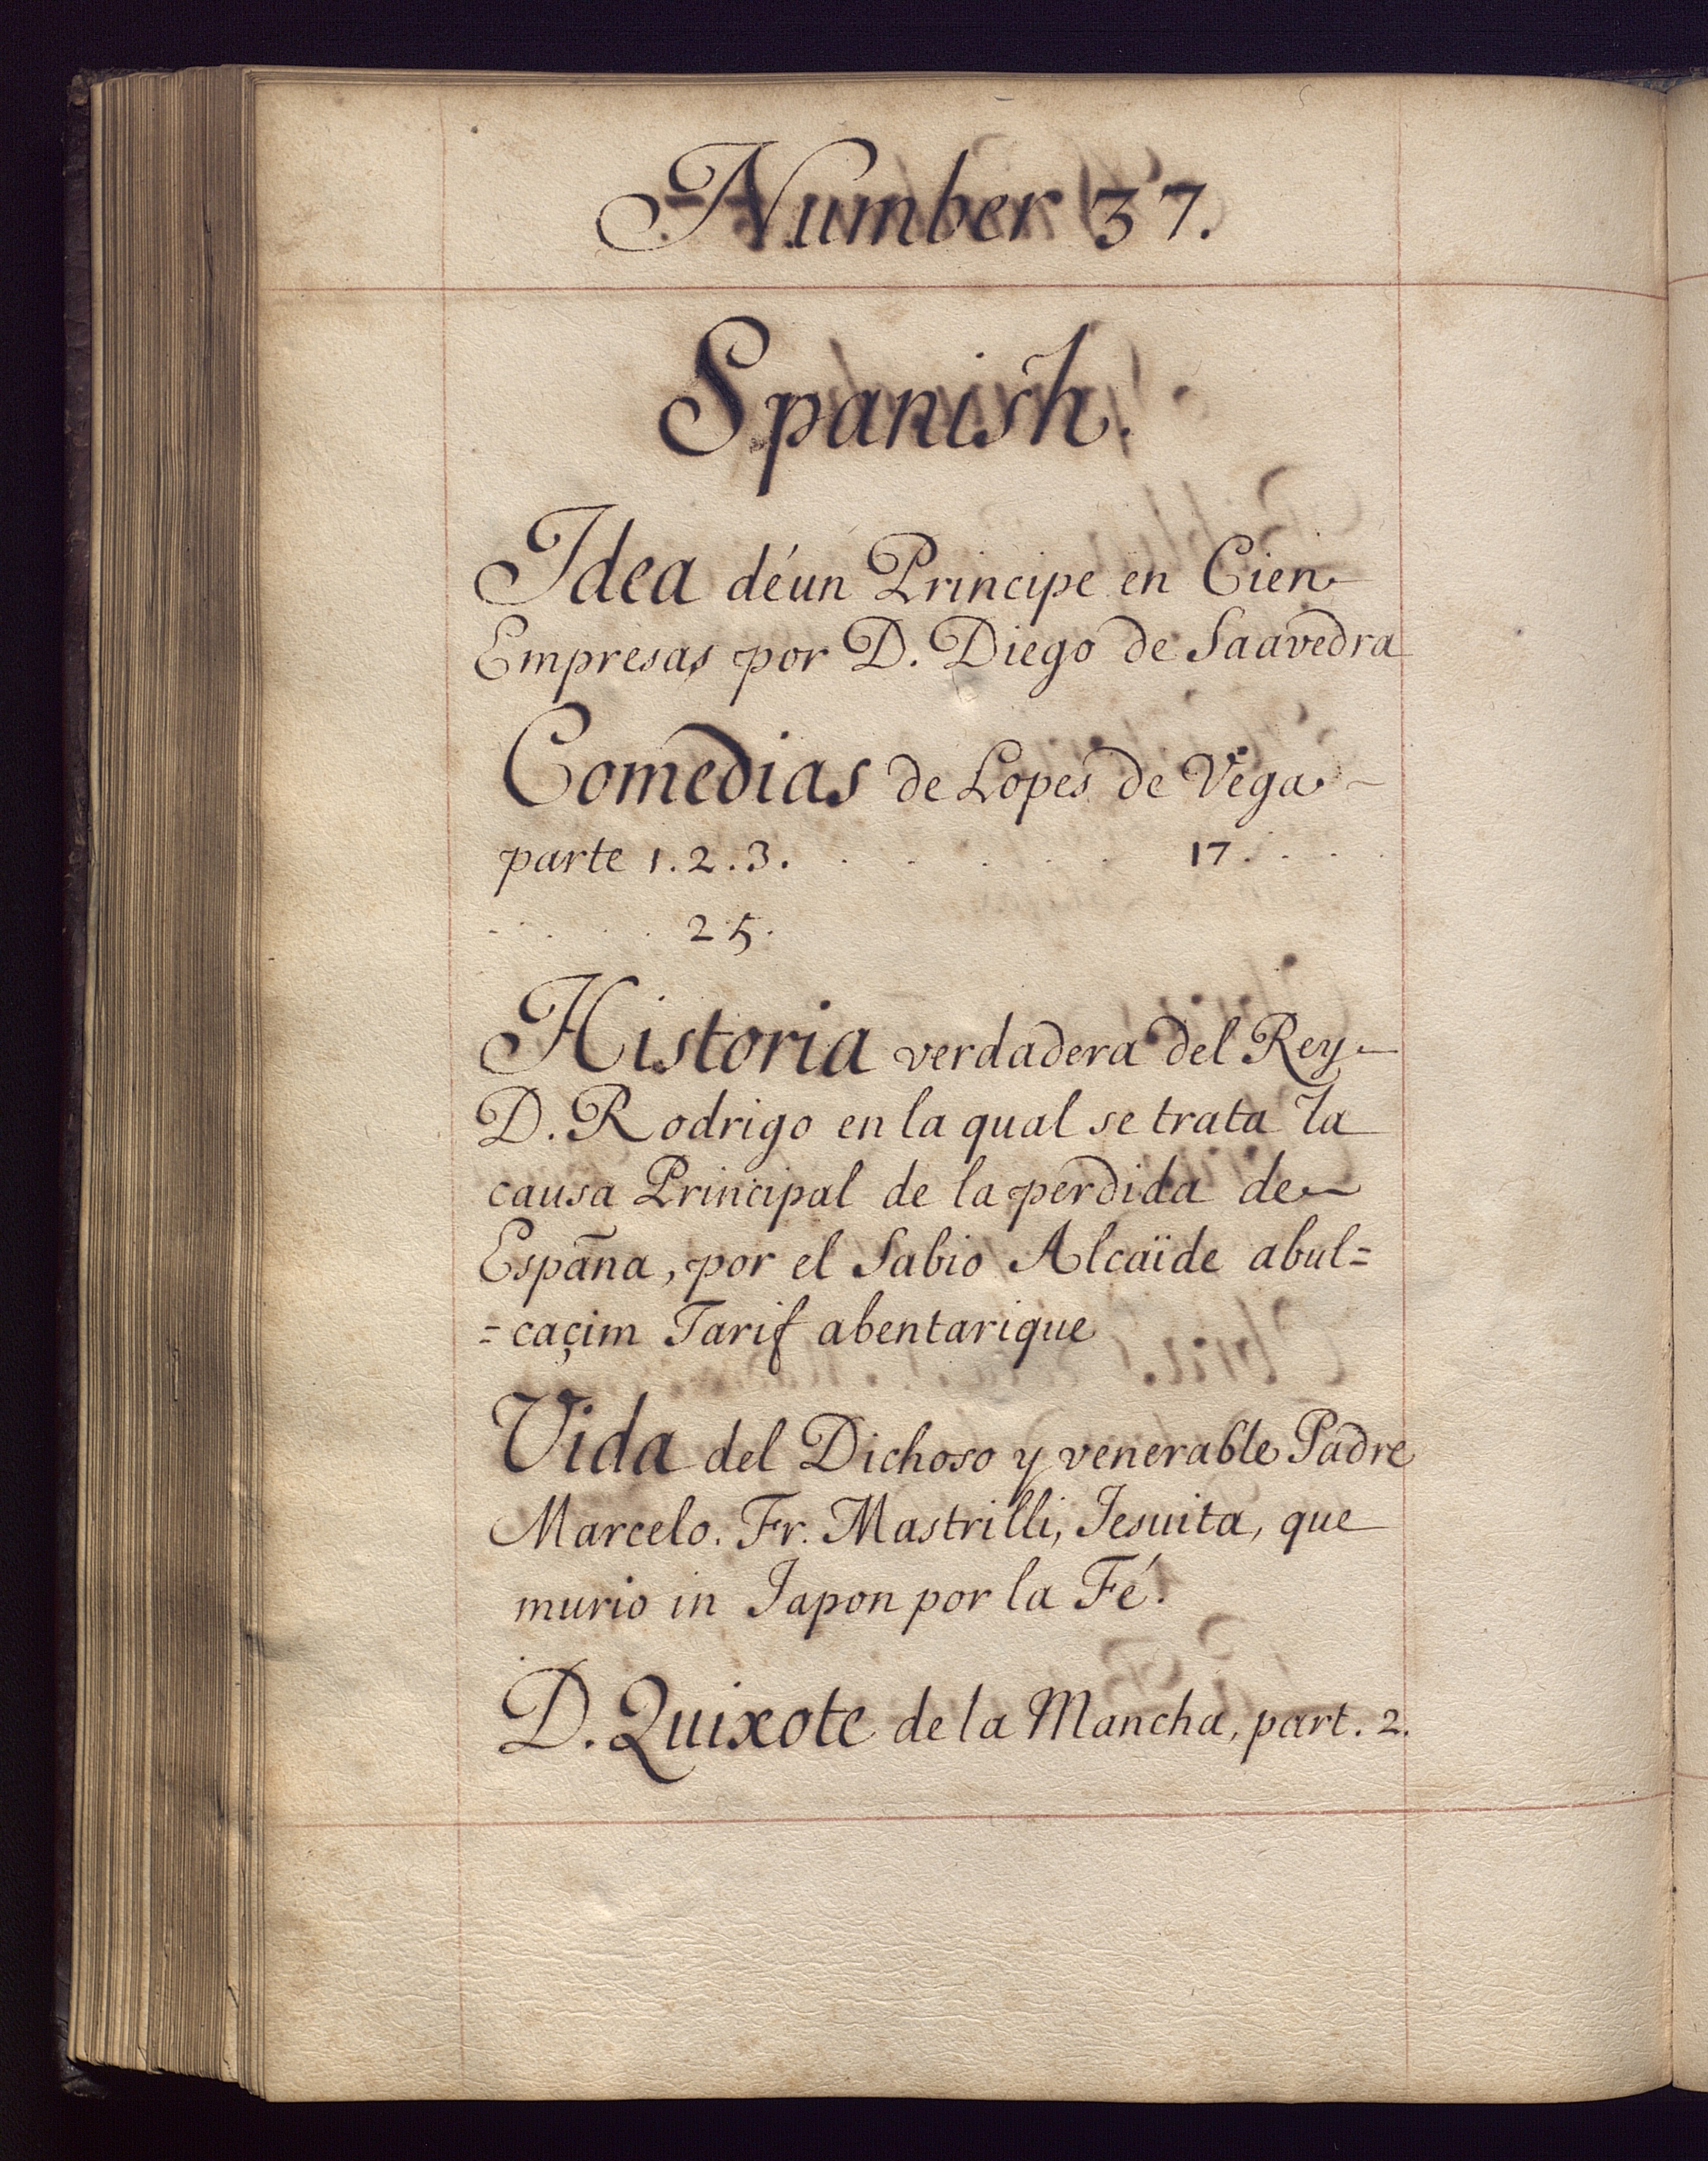 Number 37.
Spanish.
Idea déun Principe en Cien
Empresas por D. Diego de Saavedra
Comedias de Lopes de Vega
parte 1. 2. 3. . . . . . . 17. . . .
. . . . . 25.
Historia verdadera del Rey
D. Rodrigo en la qual se trata la
causa Principal de la perdida de
Espãna, por el Sabio Alcaïde abul=
=caçim Tarif abentarique
Vida del Dichoso y venerable Padre
Marcelo. Fr. Mastrilli, Jesuita, que
murio in Japon por la Fé.
D. Quixote de la Mancha, part. 2.